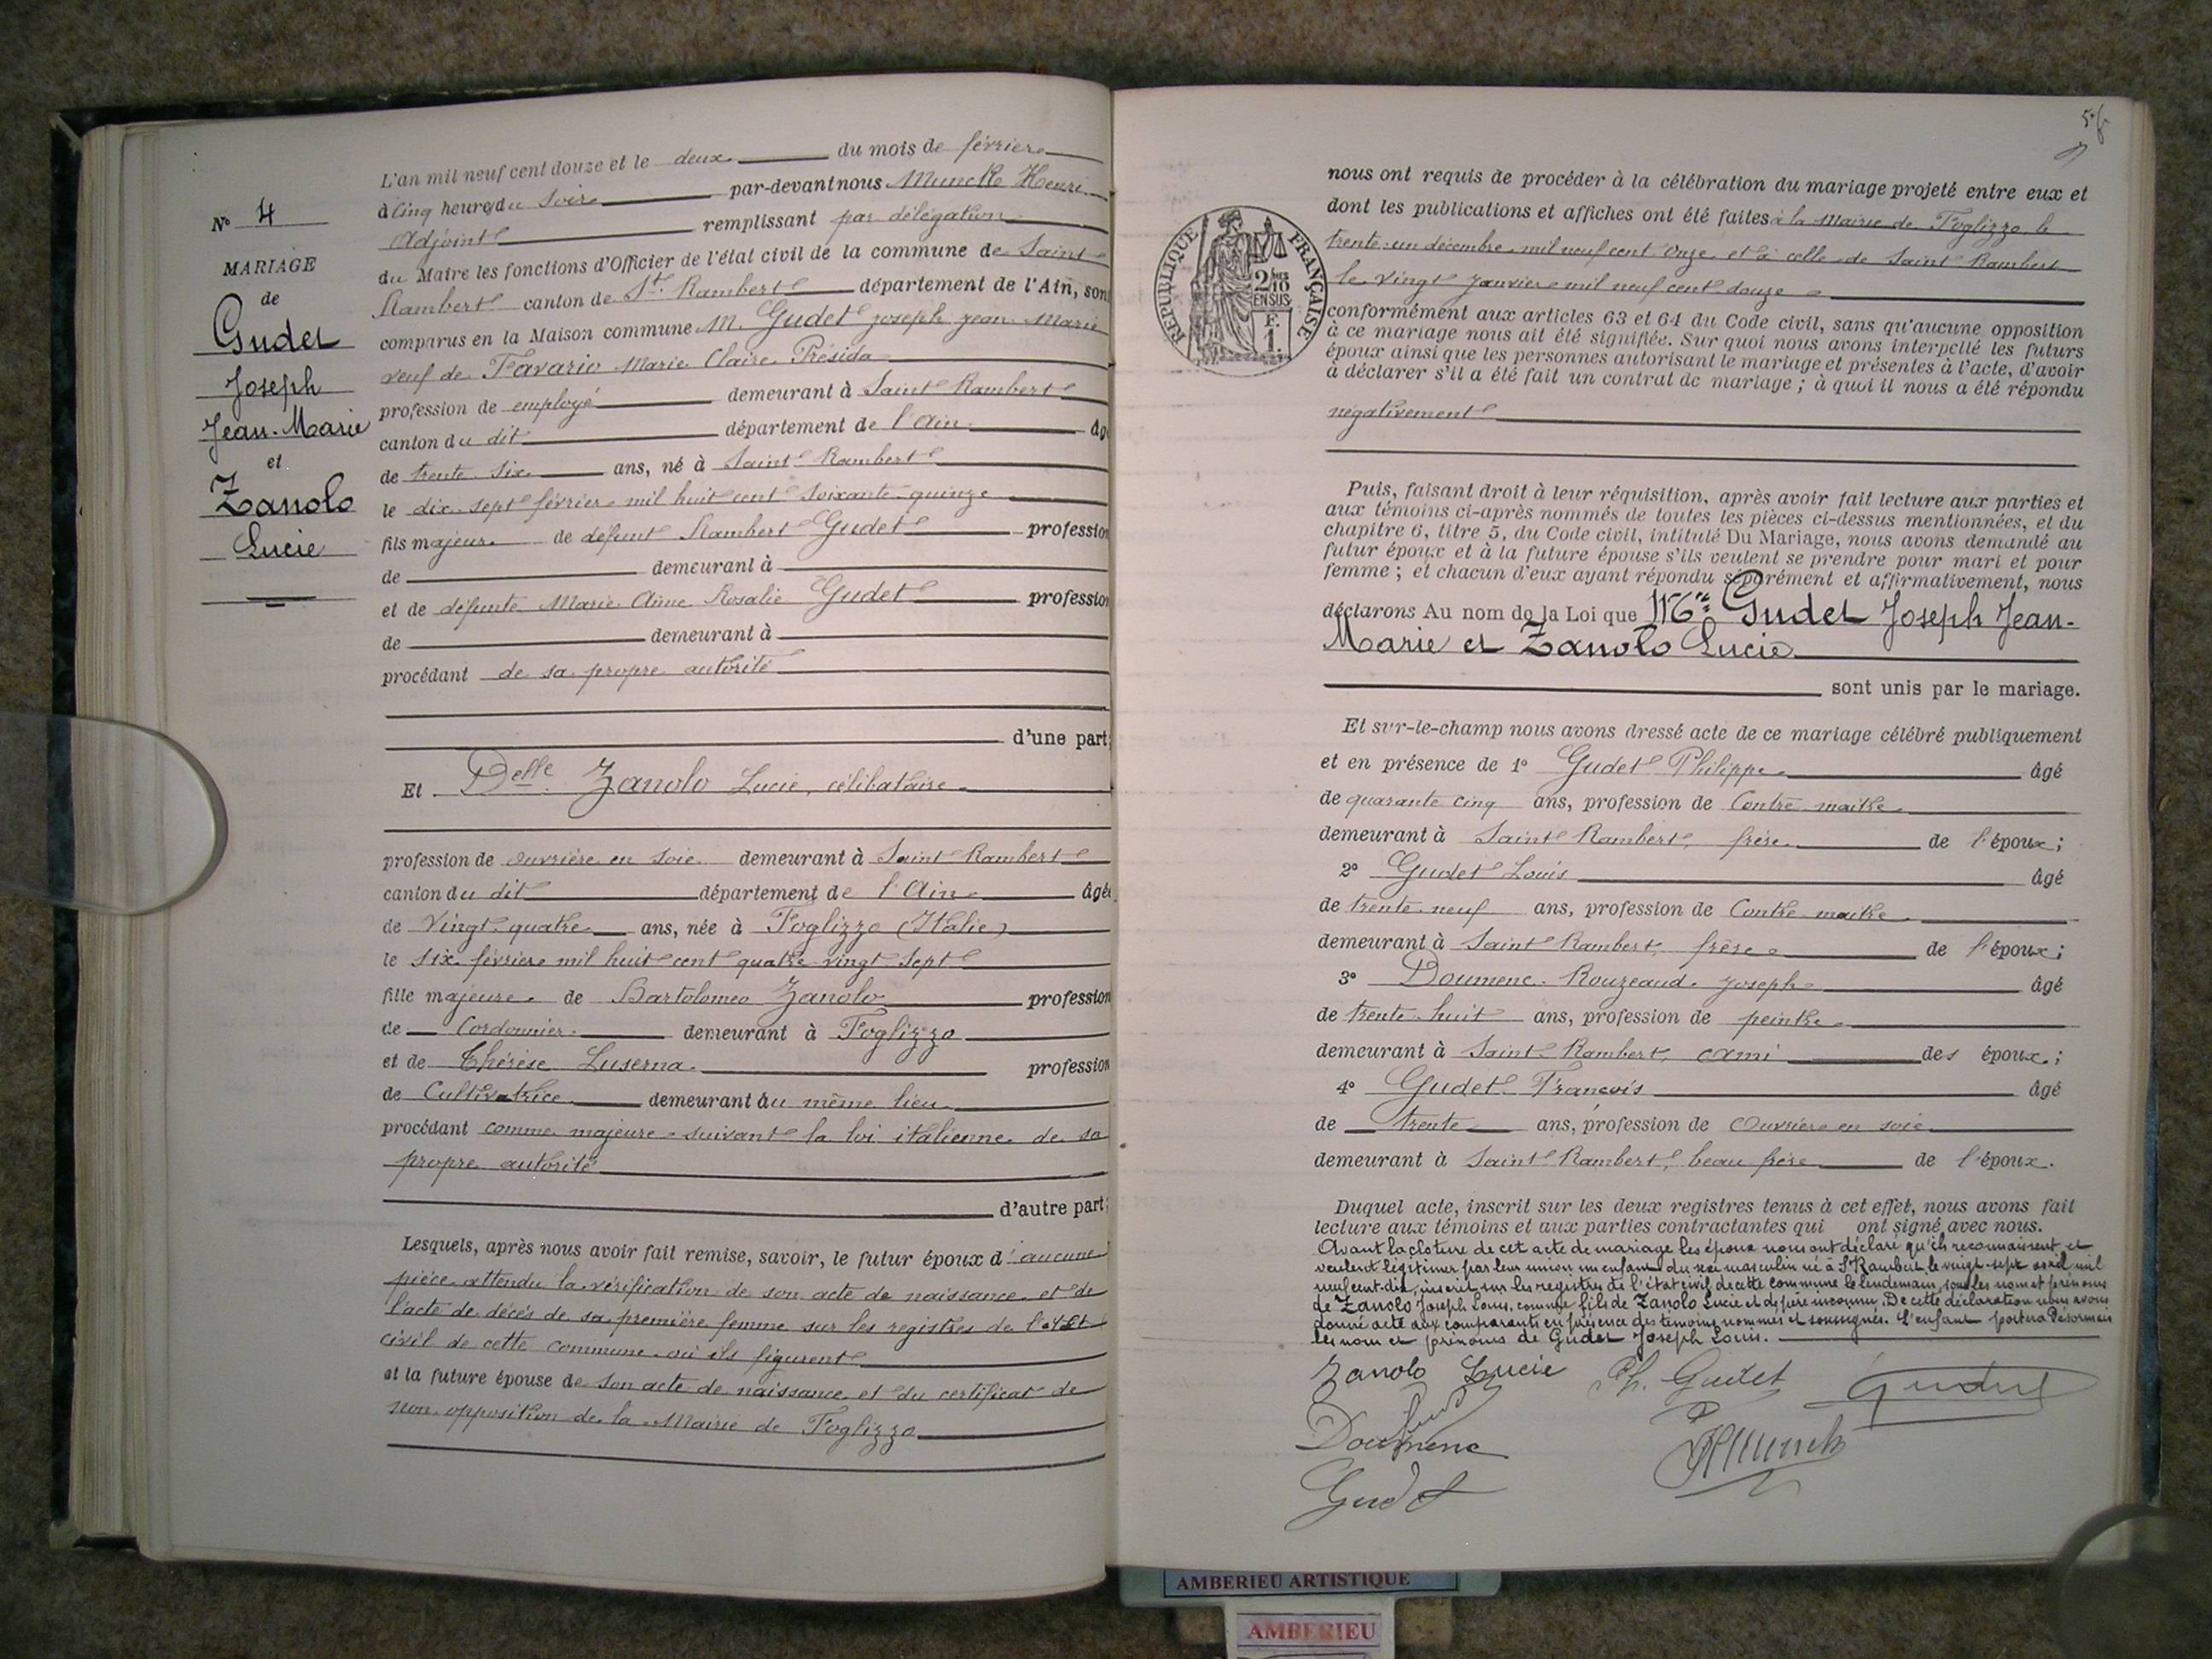 N° 4
MARIAGE
de
Gudet
Joseph
Jean-Marie
et
Zanolo
Lucie
L'an mil neuf cent douze et le deux du mois de février
à cinq heures du soir par-devant nous Munck Henri
Adjoint remplissant par délégation
du Maire les fonctions d'Officier de l'état civil de la commune de Saint
Rambert canton de St Rambert département de l'Ain, sont
comparus en la Maison commune M. Gudet joseph jean Marie
veuf de Favario Marie Claire Présida
profession de employé demeurant à Saint Rambert
canton du dit département de l'Ain âgé
de trente six ans, né à Saint Rambert
le dix-sept février mil huit cent soixante-quinze
fils majeur de défunt Rambert Gudet profession
de demeurant à
et de défunte Marie Aime Rosalie Gudet profession
de demeurant à
procédant de sa propre autorité
d'une part;
Et Delle Zanolo Lucie, célibataire
profession de ouvrière en soie demeurant à Saint Rambert
canton du dit département de l'Ain âgée
de vingt-quatre ans, née à Foglizzo (Italie)
le six février mil huit cent quatre vingt sept
fille majeure de Bartolomeo Zanolo profession
de Cordonnier demeurant à Foglizzo
et de Thérèse Luserna profession
de Cultivatrice demeurant au même lieu
procédant comme majeure suivant la loi italienne de sa
propre autorité
d'autre part;
Lesquels, après nous avoir fait remise, savoir, le futur époux d'aucune
pièce attendu la vérification de son acte de naissance et de
l'acte de décès de sa première femme sur les registres de l'état
civil de cette commune où ils figurent
et la future épouse de son acte de naissance et du certificat de
non opposition de la Mairie de Foglizzo
nous ont requis de procéder à la célébration du mariage projeté entre eux et
dont les publications et affiches ont été faites à la Mairie de Foglizzo le
trente-un décembre mil neuf cent onze et à celle de Saint Rambert
le vingt janvier mil neuf cent douze
RÉPUBLIQUE FRANÇAISE
2/10
EN SUS
F.
1.
conformément aux articles 63 et 64 du Code civil, sans qu'aucune opposition
à ce mariage nous ait été signifiée. Sur quoi nous avons interpellé les futurs
époux ainsi que les personnes autorisant le mariage et présentes à l'acte, d'avoir
à déclarer s'il a été fait un contrat de mariage ; à quoi il nous a été répondu
négativement
Puis, faisant droit à leur réquisition, après avoir fait lecture aux parties et
aux témoins ci-après nommés de toutes les pièces ci-dessus mentionnées, et du
chapitre 6, titre 5, du Code civil, intitulé Du Mariage, nous avons demandé au
futur époux et à la future épouse s'ils veulent se prendre pour mari et pour
femme ; et chacun d'eux ayant répondu séparément et affirmativement, nous
déclarons Au nom de la Loi que Gudet Joseph Jean-
Marie et Zanolo Lucie
sont unis par le mariage.
Et sur-le-champ nous avons dressé acte de ce mariage célébré publiquement
et en présence de 1° Gudet Philippe âgé
de quarante cinq ans, profession de Contre-maître
demeurant à Saint Rambert, frère de l'époux ;
2° Gudet Louis âgé
de trente-neuf ans, profession de Contre-maître
demeurant à Saint Rambert, frère de l'époux ;
3° Doumenc-Rouzeaud Joseph âgé
de trente-huit ans, profession de peintre
demeurant à Saint Rambert, ami des époux ;
4° Gudet François âgé
de trente ans, profession de Ouvrière en soie
demeurant à Saint Rambert, beau frère de l'époux.
Duquel acte, inscrit sur les deux registres tenus à cet effet, nous avons fait
lecture aux témoins et aux parties contractantes qui ont signé avec nous.
Avant la cloture de cet acte de mariage les époux nous ont déclaré qu'ils reconnaissent et
veulent légitimer par leur union un enfant du sexe masculin né à St Rambert le vingt-sept avril mil
neuf cent-dix, inscrit sur les registres de l'état civil de cette commune le lendemain, sous les nom et prénoms
de Zanolo Joseph Louis, comme fils de Zanolo Lucie et de père inconnu. De cette déclaration nous avons
donné acte aux comparants en présence des témoins nommés et soussignés. L'enfant portera désormais
les nom et prénoms de Gudet Joseph Louis.
Zanolo Lucie Ph. Gudet Gudet
Doumenc
Munck
Gudet
AMBERIEU ARTISTIQUE
AMBERIEU